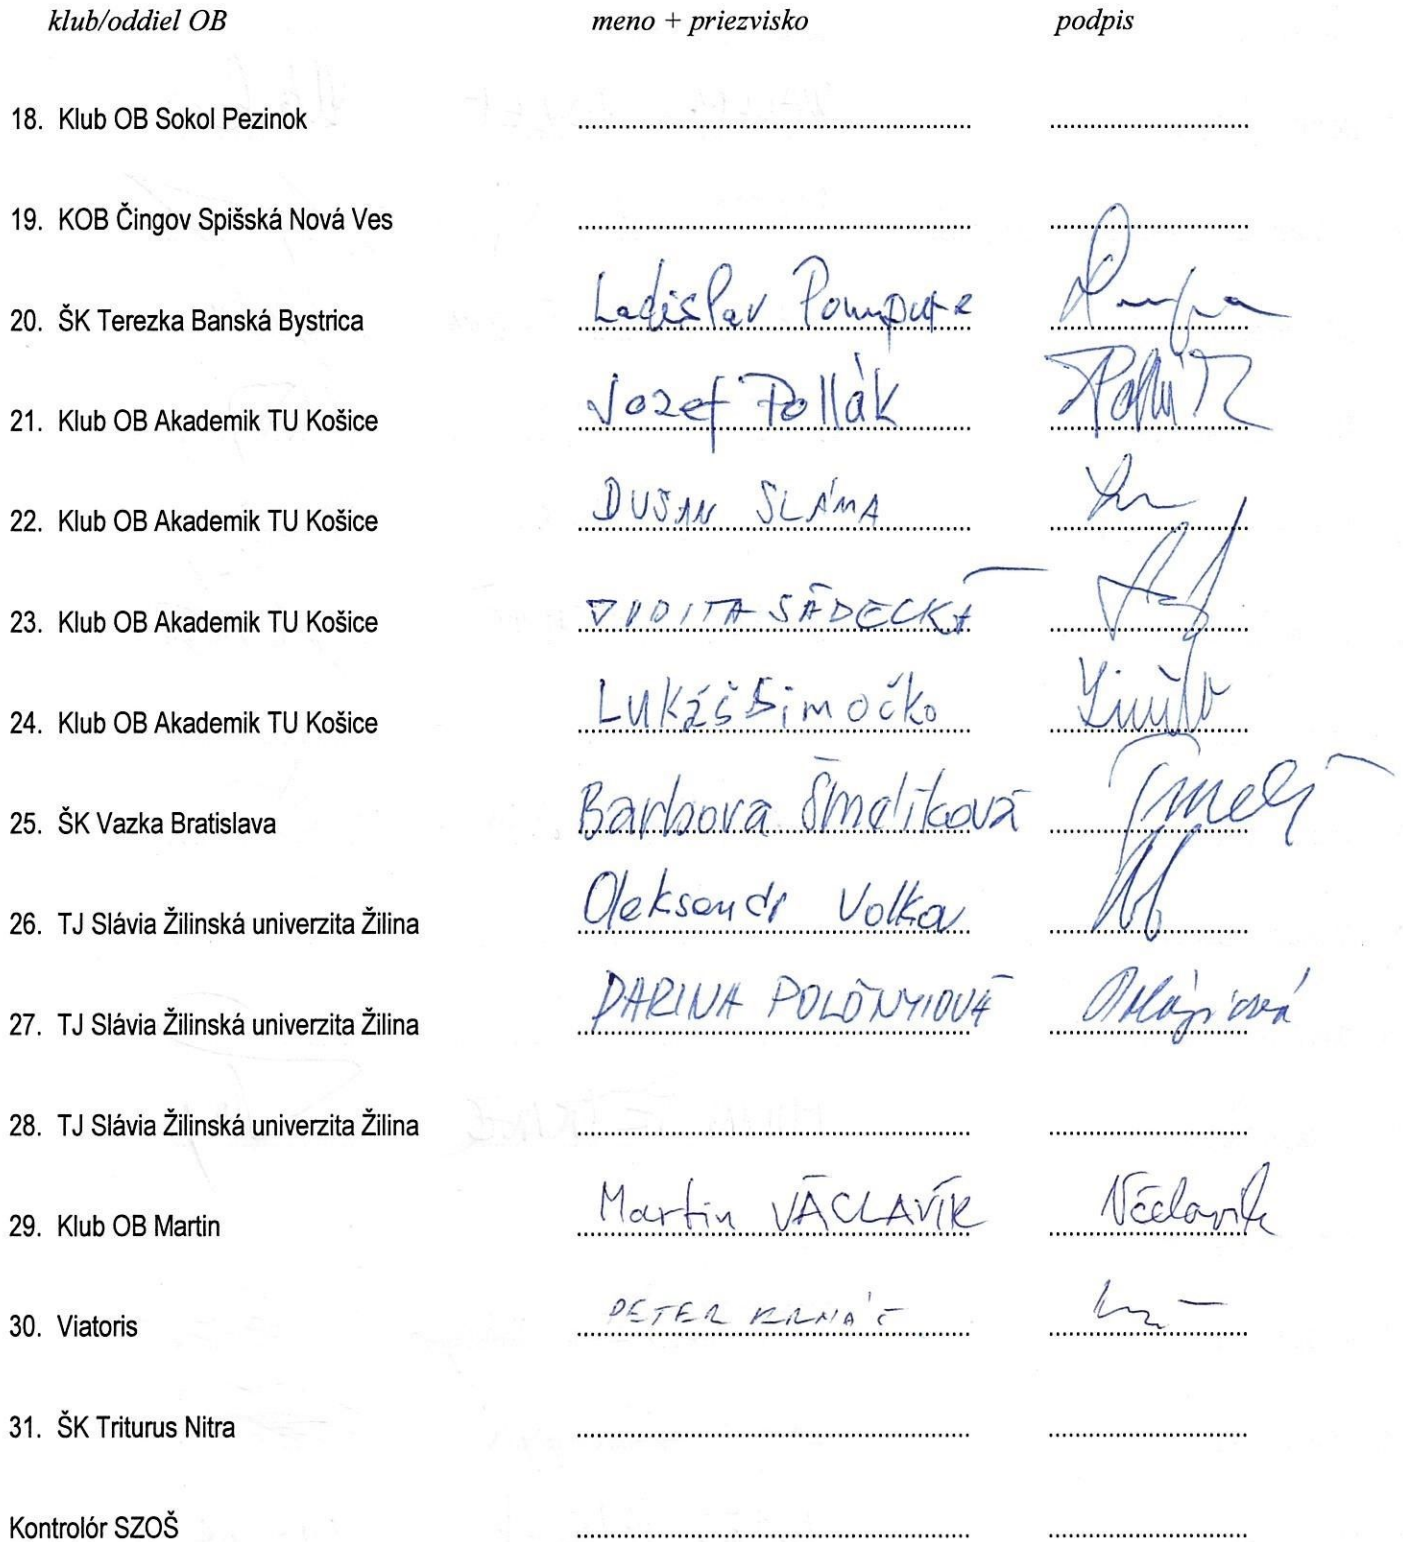 klub/oddiel OB meno + priezvisko podpis
18. Klub OB Sokol Pezinok
19. KOB Čingov Spišská Nová Ves
20. ŠK Terezka Banská Bystrica Ladislav
21. Klub OB Akademik TU Košice Jozef Pollák
22. Klub OB Akademik TU Košice DUŠAN SLÁMA
23. Klub OB Akademik TU Košice JUDITA SÁDECKÁ
24. Klub OB Akademik TU Košice Lukáš Šimočko
25. ŠK Vazka Bratislava Barbora Šmelíková
26. TJ Slávia Žilinská univerzita Žilina Oleksandr Volkov
27. TJ Slávia Žilinská univerzita Žilina DARINA POLÓNYIOVÁ
28. TJ Slávia Žilinská univerzita Žilina
29. Klub OB Martin Martin VÁCLAVÍK Václavík
30. Viatoris PETER KRNÁČ
31. ŠK Triturus Nitra
Kontrolór SZOŠ